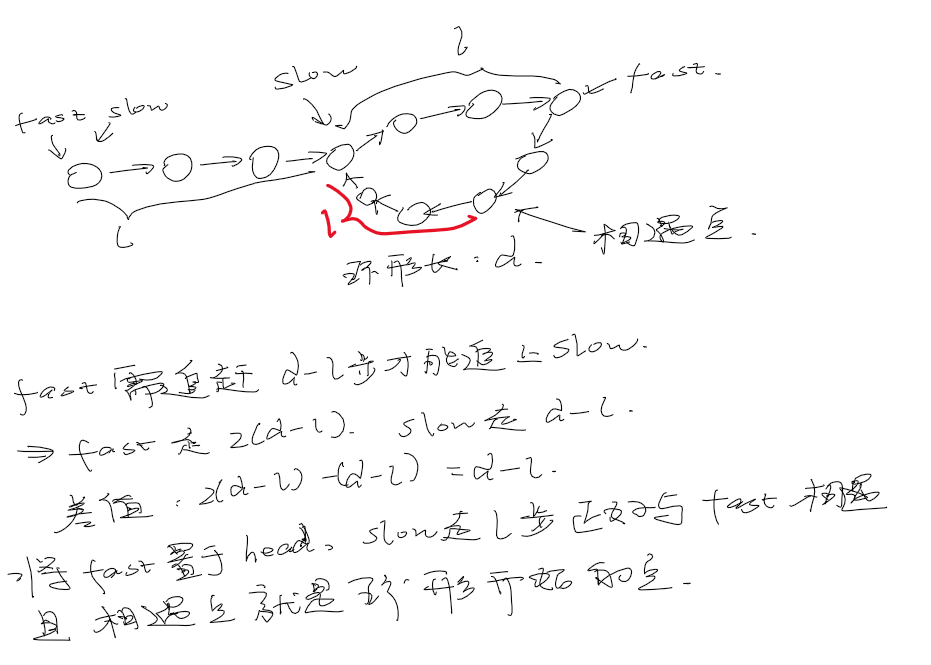 l
slow
fast.
fast slow
l
l
相遇点.
环形长:d.
fast 需追赶 d-l步才能追上slow.
⇒ fast 走 2(d-l). slow走 d-l.
差值:2(d-l)-(d-l)=d-l.
将fast置于head、slow走l步正好与fast相遇
且相遇点就是环形开始的点.